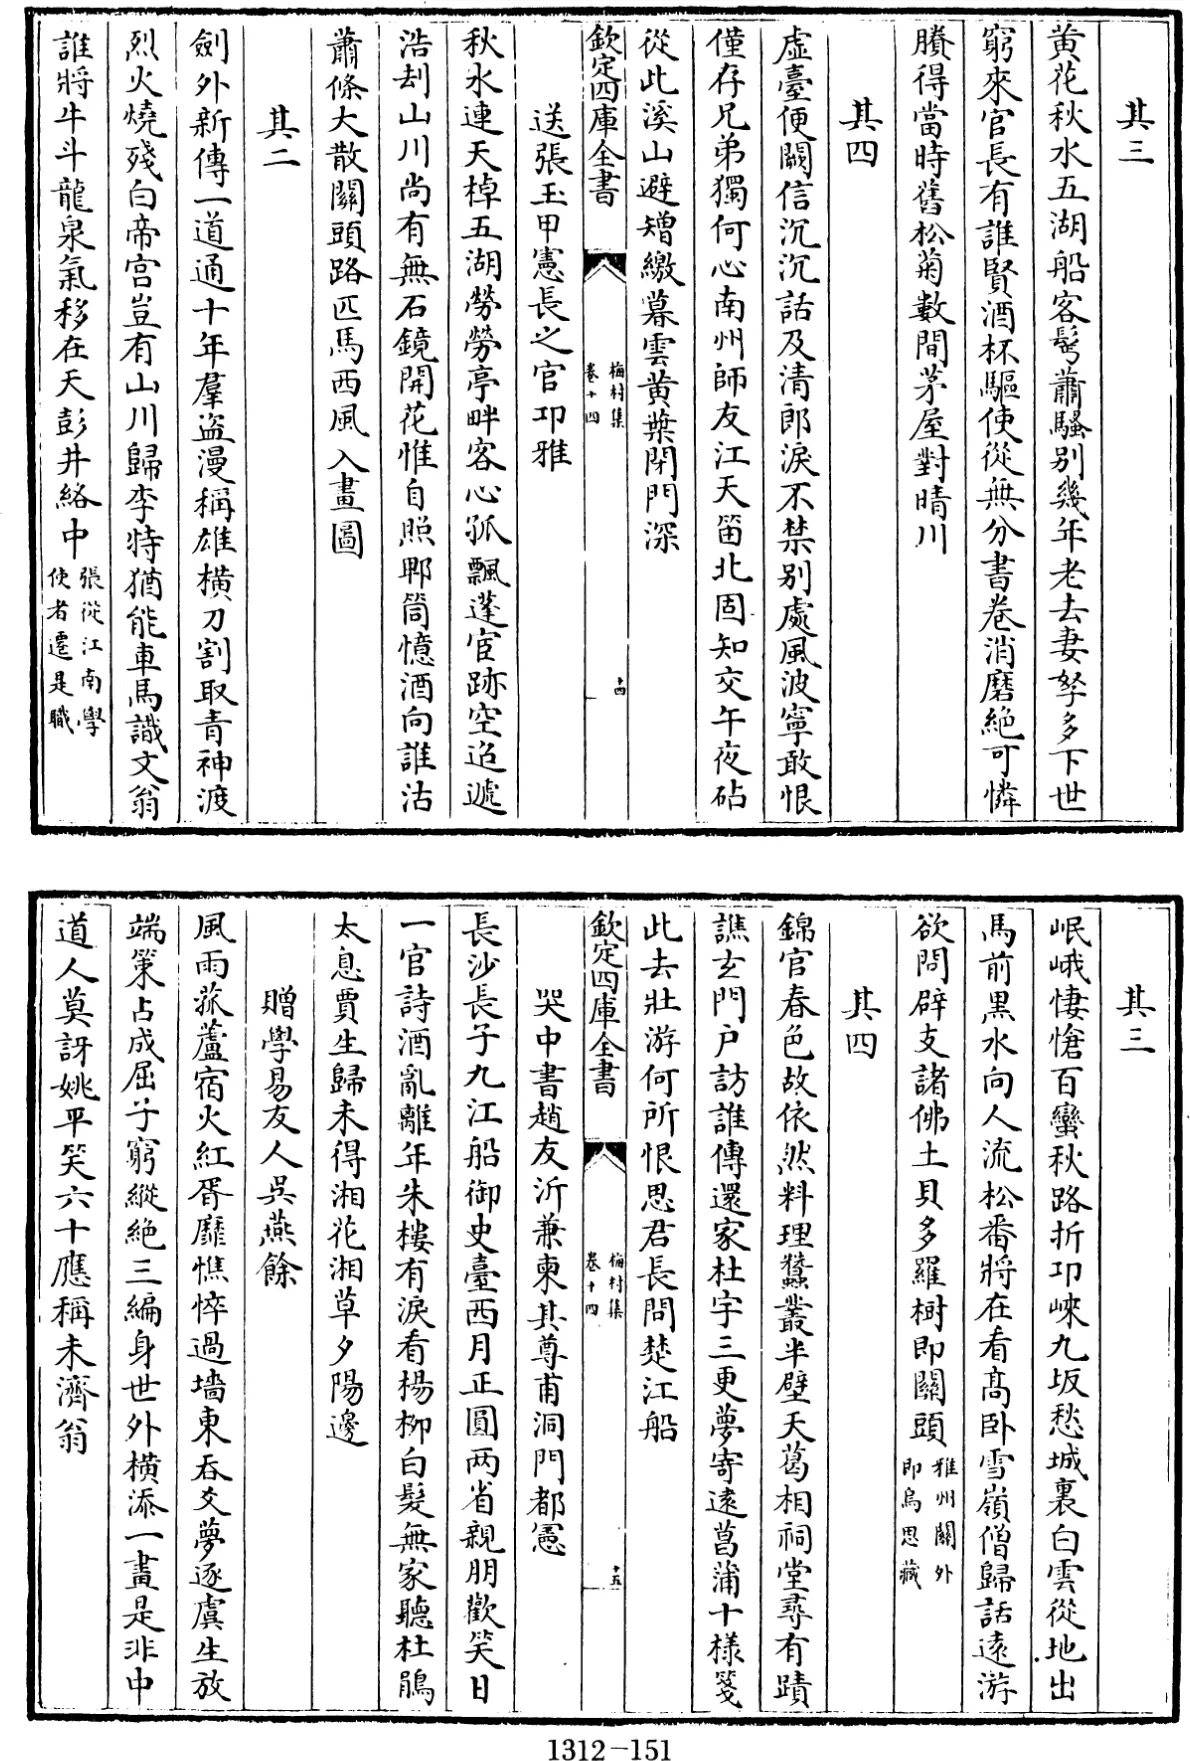 其三
黄花秋水五湖船客髩蕭騷别幾年老去妻孥多下世
窮來官長有誰賢酒杯驅使從無分書卷消磨絶可憐
賸得當時舊松菊數間茅屋對晴川
其四
虚臺便闕信沉沉話及清郎淚不禁别處風波寧敢恨
僅存兄弟獨何心南州師友江天笛北固知交午夜砧
從此溪山避矰繳暮雲黄葉閉門深
欽定四庫全書
梅村集
卷十四
十四
送張玉甲憲長之官卭雅
秋水連天棹五湖勞勞亭畔客心孤飄蓬宦跡空迢遞
浩刦山川尚有無石鏡開花惟自照郫筒憶酒向誰沽
蕭條大散關頭路匹馬西風入畫圖
其二
劍外新傳一道通十年羣盗漫稱雄横刀割取青神渡
烈火燒殘白帝宫豈有山川歸李特猶能車馬識文翁
誰將牛斗龍泉氣移在天彭井絡中
張從江南學
使者遷是職
其三
岷峨悽愴百蠻秋路折卭崍九坂愁城裏白雲從地出
馬前黑水向人流松番將在看髙卧雪嶺僧歸話逺游
欲問辟支諸佛土貝多羅樹即關頭
雅州關外
即烏思藏
其四
錦官春色故依然料理蠶叢半壁天葛相祠堂尋有蹟
譙玄門户訪誰傳還家杜宇三更夢寄逺菖蒲十様箋
此去壯游何所恨思君長問楚江船
欽定四庫全書
梅村集
卷十四
十五
哭中書趙友沂兼柬其尊甫洞門都憲
長沙長子九江船御史臺西月正圓两省親朋歡笑日
一官詩酒亂離年朱樓有淚看楊柳白髮無家聽杜鵑
太息賈生歸未得湘花湘草夕陽邊
贈學易友人吳燕餘
風雨菰蘆宿火紅胥靡憔悴過墻東吞爻夢逐虞生放
端筞占成屈子窮縱絶三編身世外横添一畫是非中
道人莫訝姚平笑六十應稱未濟翁
1312-151